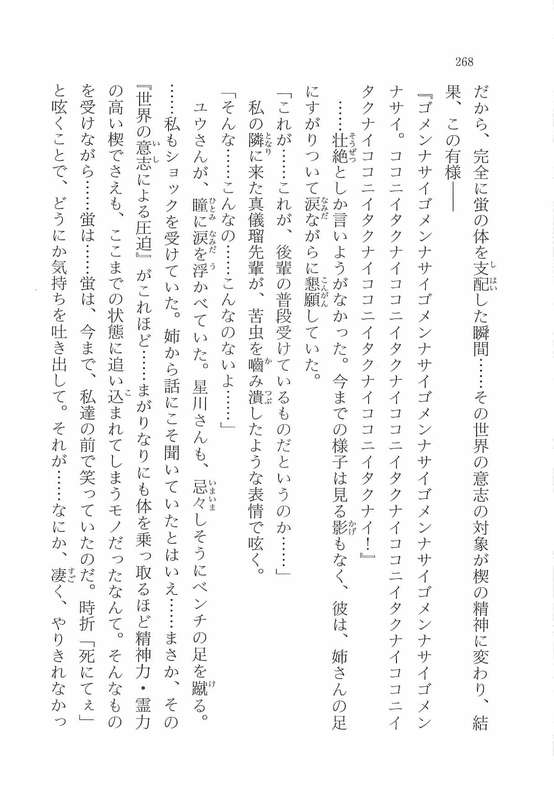 268
だから、完全に蛍の体を支配した瞬間……その世界の意志の対象が楔の精神に変わり、結
果、この有様――
『ゴメンナサイゴメンナサイゴメンナサイゴメンナサイゴメンナサイゴメンナサイゴメン
ナサイ。ココニイタクナイココニイタクナイココニイタクナイココニイタクナイココニイ
タクナイココニイタクナイココニイタクナイココニイタクナイココニイタクナイ!』
……壮絶としか言いようがなかった。今までの様子は見る影もなく、彼は、姉さんの足
にすがりついて涙ながらに懇願していた。
「これが……これが、後輩の普段受けているものだというのか……」
私の隣に来た真儀瑠先輩が、苦虫を嚙み潰したような表情で呟く。
「そんな……こんなの……こんなのないよ……」
ユウさんが、瞳に涙を浮かべていた。星川さんも、忌々しそうにベンチの足を蹴る。
……私もショックを受けていた。姉から話にこそ聞いていたとはいえ……まさか、その
『世界の意志による圧迫』がこれほど……まがりなりにも体を乗っ取るほど精神力・霊力
の高い楔でさえも、ここまでの状態に追い込まれてしまうモノだったなんて。そんなもの
を受けながら……蛍は……蛍は、今まで、私達の前で笑っていたのだ。時折「死にてぇ」
と呟くことで、どうにか気持ちを吐き出して。それが……なにか、凄く、やりきれなかっ